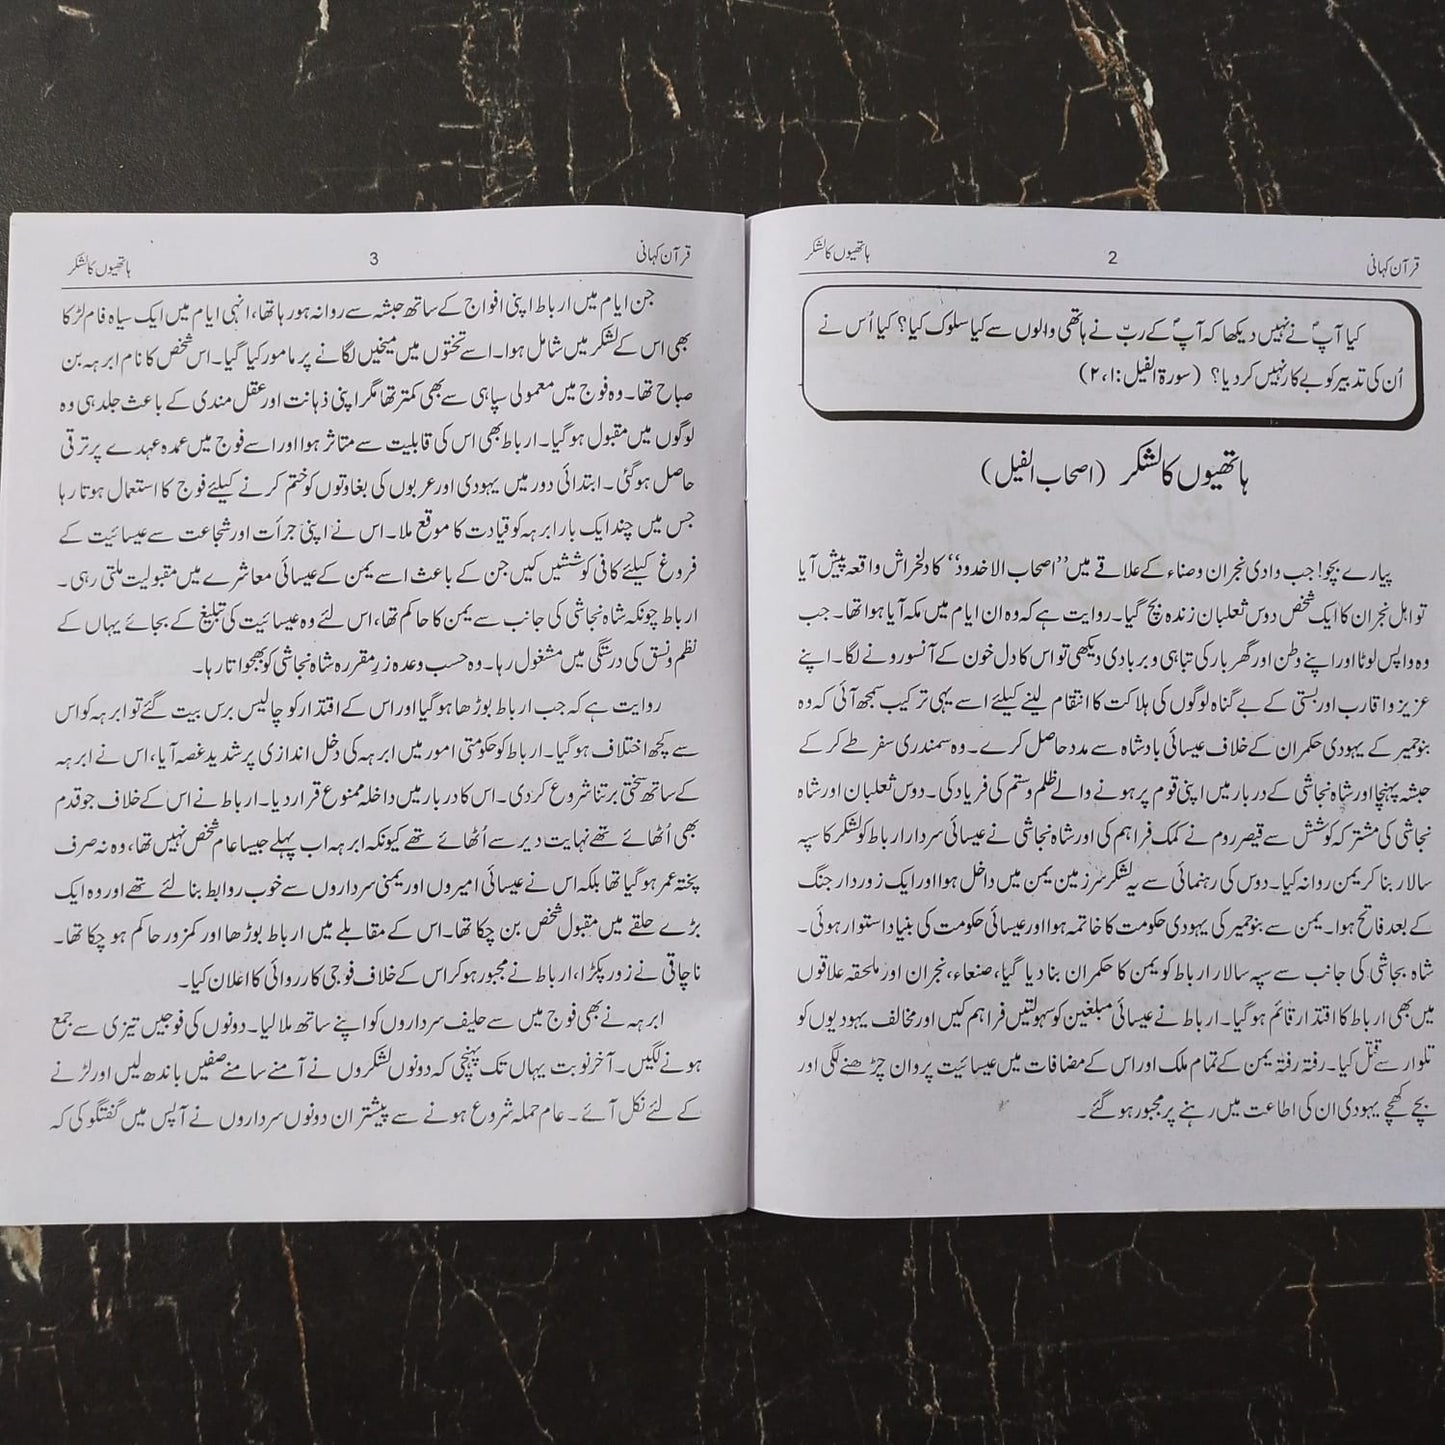 قرآن کہانی 2 ہاتھیوں کا لشکر
کیا آپؐ نے نہیں دیکھا کہ آپؐ کے ربّ نے ہاتھی والوں سے کیا سلوک کیا؟ کیا اُس نے
اُن کی تدبیر کو بے کار نہیں کر دیا؟ (سورۃ الفیل:۲،۱)
ہاتھیوں کا لشکر (اصحاب الفیل)
پیارے بچو! جب وادی نجران وصناء کے علاقے میں ’’اصحاب الاخدود‘‘ کا دلخراش واقعہ پیش آیا
تو اہل نجران کا ایک شخص دوس ثعلبان زندہ بچ گیا۔ روایت ہے کہ وہ ان ایام میں مکہ آیا ہوا تھا۔ جب
وہ واپس لوٹا اور اپنے وطن اور گھربار کی تباہی و بربادی دیکھی تو اس کا دل خون کے آنسو رونے لگا۔ اپنے
عزیز واقارب اور بستی کے بے گناہ لوگوں کی ہلاکت کا انتقام لینے کیلئے اسے یہی ترکیب سمجھ آئی کہ وہ
بنو حمیر کے یہودی حکمران کے خلاف عیسائی بادشاہ سے مدد حاصل کرے۔ وہ سمندری سفر طے کر کے
حبشہ پہنچا اور شاہ نجاشی کے دربار میں اپنی قوم پر ہونے والے ظلم وستم کی فریاد کی۔ دوس ثعلبان اور شاہ
نجاشی کی مشترکہ کوشش سے قیصر روم نے کمک فراہم کی اور شاہ نجاشی نے عیسائی سردار ارباط کو لشکر کا سپہ
سالار بنا کر یمن روانہ کیا۔ دوس کی رہنمائی سے یہ لشکر سرزمین یمن میں داخل ہوا اور ایک زوردار جنگ
کے بعد فاتح ہوا۔ یمن سے بنو حمیر کی یہودی حکومت کا خاتمہ ہوا اور عیسائی حکومت کی بنیاد استوار ہوئی۔
شاہ نجاشی کی جانب سے سپہ سالار ارباط کو یمن کا حکمران بنا دیا گیا، صنعاء، نجران اور ملحقہ علاقوں
میں بھی ارباط کا اقتدار قائم ہو گیا۔ ارباط نے عیسائی مبلغین کو سہولتیں فراہم کیں اور مخالف یہودیوں کو
تلوار سے قتل کیا۔ رفتہ رفتہ یمن کے تمام ملک اور اس کے مضافات میں عیسائیت پروان چڑھنے لگی اور
بچے کھچے یہودی ان کی اطاعت میں رہنے پر مجبور ہو گئے۔
قرآن کہانی 3 ہاتھیوں کا لشکر
جن ایام میں ارباط اپنی افواج کے ساتھ حبشہ سے روانہ ہو رہا تھا، انہی ایام میں ایک سیاہ فام لڑکا
بھی اس کے لشکر میں شامل ہوا۔ اسے تختوں میں میخیں لگانے پر مامور کیا گیا۔ اس شخص کا نام ابرہہ بن
صباح تھا۔ وہ فوج میں معمولی سپاہی سے بھی کمتر تھا مگر اپنی ذہانت اور عقل مندی کے باعث جلد ہی وہ
لوگوں میں مقبول ہو گیا۔ ارباط بھی اس کی قابلیت سے متاثر ہوا اور اسے فوج میں عمدہ عہدے پر ترقی
حاصل ہو گئی۔ ابتدائی دور میں یہودی اور عربوں کی بغاوتوں کو ختم کرنے کیلئے فوج کا استعمال ہوتا رہا
جس میں چند ایک بار ابرہہ کو قیادت کا موقع ملا۔ اس نے اپنی جرأت اور شجاعت سے عیسائیت کے
فروغ کیلئے کافی کوششیں کیں جن کے باعث اسے یمن کے عیسائی معاشرے میں مقبولیت ملتی رہی۔
ارباط چونکہ شاہ نجاشی کی جانب سے یمن کا حاکم تھا، اس لئے وہ عیسائیت کی تبلیغ کے بجائے یہاں کے
نظم ونسق کی درستگی میں مشغول رہا۔ وہ حسب وعدہ زرِ مقررہ شاہ نجاشی کو بھجواتا رہا۔
روایت ہے کہ جب ارباط بوڑھا ہو گیا اور اس کے اقتدار کو چالیس برس بیت گئے تو ابرہہ کو اس
سے کچھ اختلاف ہو گیا۔ ارباط کو حکومتی امور میں ابرہہ کی دخل اندازی پر شدید غصہ آیا، اس نے ابرہہ
کے ساتھ سختی برتنا شروع کر دی۔ اس کا دربار میں داخلہ ممنوع قرار دیا۔ ارباط نے اس کے خلاف جو قدم
بھی اُٹھائے تھے نہایت دیر سے اُٹھائے تھے کیونکہ ابرہہ اب پہلے جیسا عام شخص نہیں تھا، وہ نہ صرف
پختہ عمر ہو گیا تھا بلکہ اس نے عیسائی امیروں اور یمنی سرداروں سے خوب روابط بنا لئے تھے اور وہ ایک
بڑے حلقے میں مقبول شخص بن چکا تھا۔ اس کے مقابلے میں ارباط بوڑھا اور کمزور حاکم ہو چکا تھا۔
ناچاقی نے زور پکڑا، ارباط نے مجبور ہو کر اس کے خلاف فوجی کارروائی کا اعلان کیا۔
ابرہہ نے بھی فوج میں سے حلیف سرداروں کو اپنے ساتھ ملا لیا۔ دونوں کی فوجیں تیزی سے جمع
ہونے لگیں۔ آخر نوبت یہاں تک پہنچی کہ دونوں لشکروں نے آمنے سامنے صفیں باندھ لیں اور لڑنے
کے لئے نکل آئے۔ عام حملہ شروع ہونے سے پیشتر ان دونوں سرداروں نے آپس میں گفتگو کی کہ